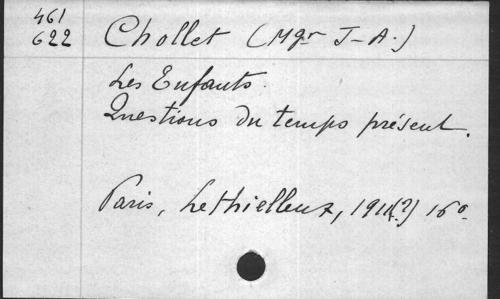 461
622
Chollet (Mgr J-A.)
Les Enfants.
Questions du temps présent.
Paris, Lethielleux, 1911(?) 16°